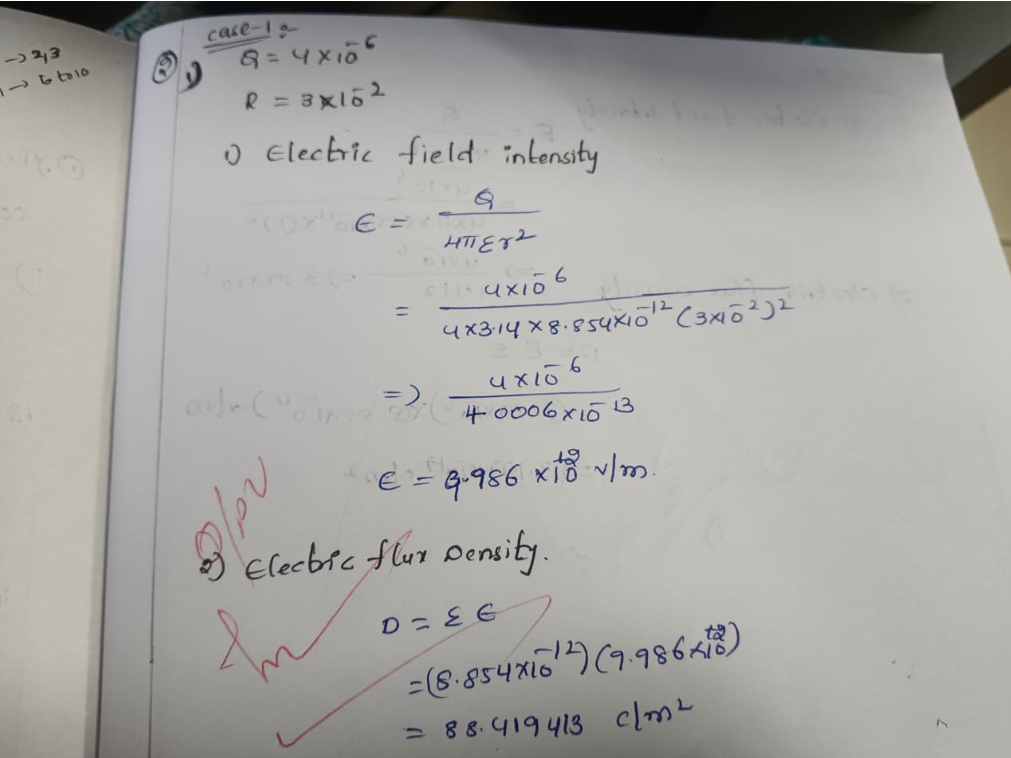 → 2,3
→ 6 to 10
case-1:-
2) 1) Q = 4×10⁻⁶
R = 3×10⁻²
1) Electric field intensity
E = Q / 4πεr²
= 4×10⁻⁶ / 4×3.14×8.854×10⁻¹² (3×10⁻²)²
=) 4×10⁻⁶ / 4 0006×10⁻¹³
E = 9.986 × v/m.
2) Electric flux Density.
D = ε E
=(8.854×10⁻¹²)(9.986×)
= 88.419413 c/m²